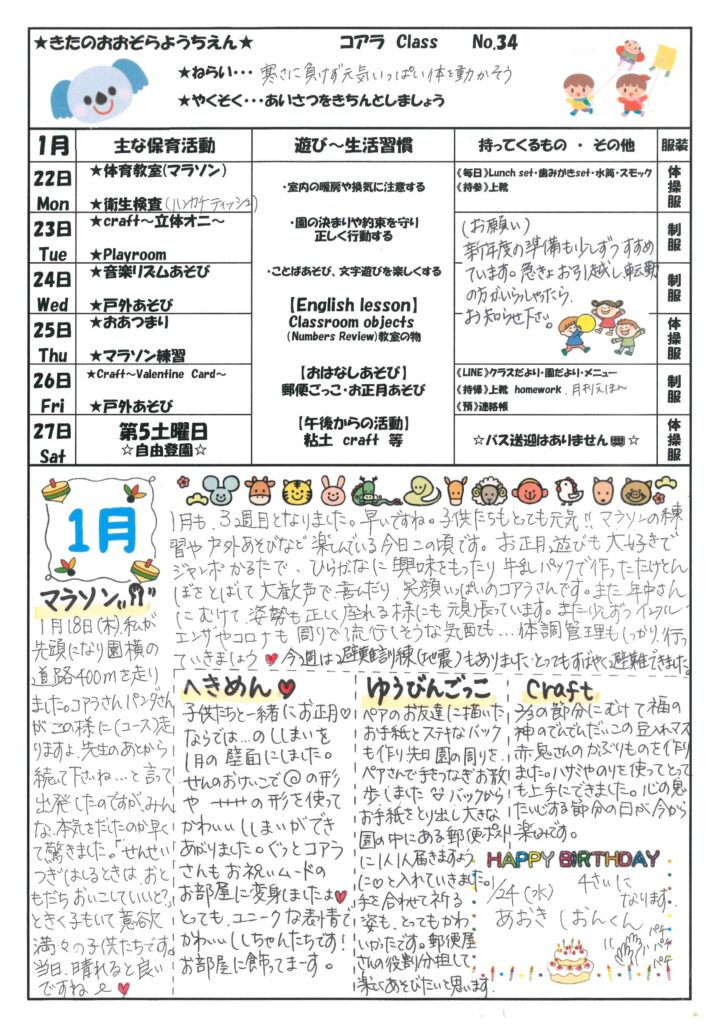 ★きたのおおぞらようちえん★ コアラ Class No.34
★ねらい・・・寒さに負けず元気いっぱい体を動かそう
★やくそく・・・あいさつをきちんとしましょう
1月 主な保育活動 遊び～生活習慣 持ってくるもの ・ その他 服装
22日 Mon
★体育教室(マラソン)
★衛生検査(ハンカチ・ティッシュ)
23日 Tue
★craft～立体オニ～
★Playroom
24日 Wed
★音楽リズムあそび
★戸外あそび
25日 Thu
★おあつまり
★マラソン練習
26日 Fri
★Craft～Valentine Card～
★戸外あそび
27日 Sat
第5土曜日
☆自由登園☆
・室内の暖房や換気に注意する
・園の決まりや約束を守り
正しく行動する
・ことばあそび、文字遊びを楽しくする
【English lesson】
Classroom objects
(Numbers Review)教室の物
【おはなしあそび】
郵便ごっこ・お正月あそび
【午後からの活動】
粘土 craft 等
《毎日》Lunch set・歯みがきset・水筒・スモック
《持参》上靴
(お願い)
新年度の準備も少しずつすすめ
ています。急きょお引越し、転勤
の方がいらっしゃったら、
お知らせ下さい。
《LINE》クラスだより・園だより・メニュー
《持帰》上靴 homework、月刊えほん
《預》連絡帳
☆バス送迎はありません☆
体操服
制服
体操服
制服
体操服
1月
1月も、3週目となりました。早いですね。子供たちもとっても元気!! マラソンの練
習や戸外あそびなど楽しんでいる今日この頃です。お正月遊びも大好きで
ジャンボかるたで、ひらがなに興味をもったり牛乳パックで作ったたけとん
ぼをとばして大歓声で喜んだり、笑顔いっぱいのコアラさんです。また年中さん
にむけて、姿勢も正しく座れる様にも頑張っています。また少しずつインフル
エンザやコロナも周りで流行しそうな気配も…体調管理もしっかり行っ
ていきましょう♥今週は避難訓練(地震)もありました。とってもすばやく避難できました。
マラソン
1月18日(木)、私が
先頭になり園横の
道路400mを走り
ました。コアラさんパンダさん
がこの様に(コース)走
りますよ。先生のあとから
続いて下さいね…と言って
出発したのですが、みん
な、本気をだしたのか早く
て驚きました。「せんせい
つぎはしるときは、おと
もだちおいこしていいと?」
ときく子もいて意欲
満々の子供たちです。
当日、晴れると良い
ですね♥
へきめん♥
子供たちと一緒にお正月♡
ならでは…のししまいを
1月の壁面にしました。
せんのおけいこで@の形
や の形を使って
かわいいししまいができ
あがりました。ぐっとコアラ
さんもお祝いムードの
お部屋に変身しましたよ♥
とっても、ユニークな表情で
かわいいししちゃんたちです!
お部屋に飾ってまーす。
ゆうびんごっこ
ペアのお友達に描いた
お手紙とステキなバック
も作り先日園の周りを、
ペアさんで手をつなぎお散
歩しました バックから
お手紙をとり出し大きな
園の中にある郵便ポスト
に1人1人届きますよう
に♡と入れていきました。
手を合わせて祈る
姿も、とってもかわ
いかったです。郵便屋
さんの役割分担して
楽しくあそびたいと思います。
Craft
2/3の節分にむけて福の
神のでんでんだいこの豆入れマス
赤鬼さんのかぶりものを作り
ました。ハサミやのりを使ってとって
も上手にできました。心の鬼
たいじする節分の日が今から
楽しみです。
HAPPY BIRTHDAY
1/24(水) 4さいに
なります。
あおき しおんくん
パチ
パチ
パチ